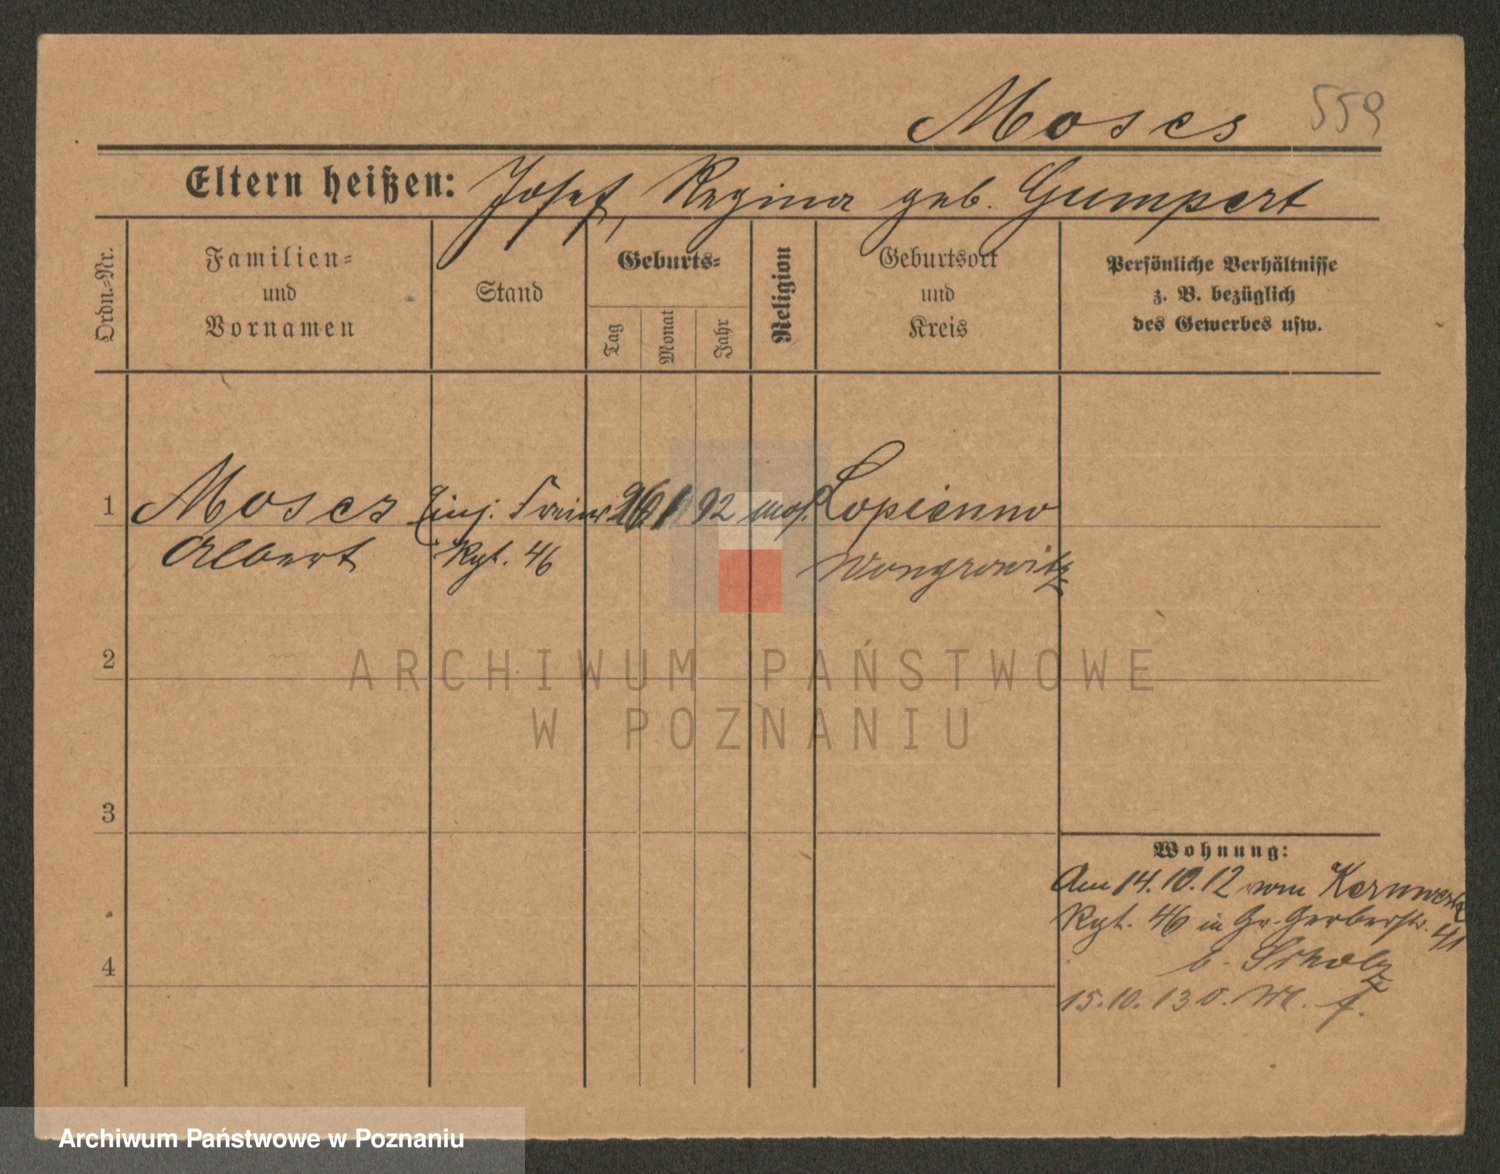 559
Moses
Eltern heißen: Josef, Regina geb. Gumpert
Ordn.-Nr.
Familien-
und
Vornamen
Stand
Geburts-
Tag
Monat
Jahr
Religion
Geburtsort
und
Kreis
Persönliche Verhältnisse
z. B. bezüglich
des Gewerbes usw.
1 Moses Einj. Freiw. 26 1 92 mos. Lopienno
Albert Rgt. 46 Wongrowitz
2
3
4
Wohnung:
Am 14.10.12 vom Kernwerk
Rgt. 46 in Gr. Gerberstr. 41
b. Scholz
15.10.13 o. M.
ARCHIWUM PAŃSTWOWE
W POZNANIU
Archiwum Państwowe w Poznaniu